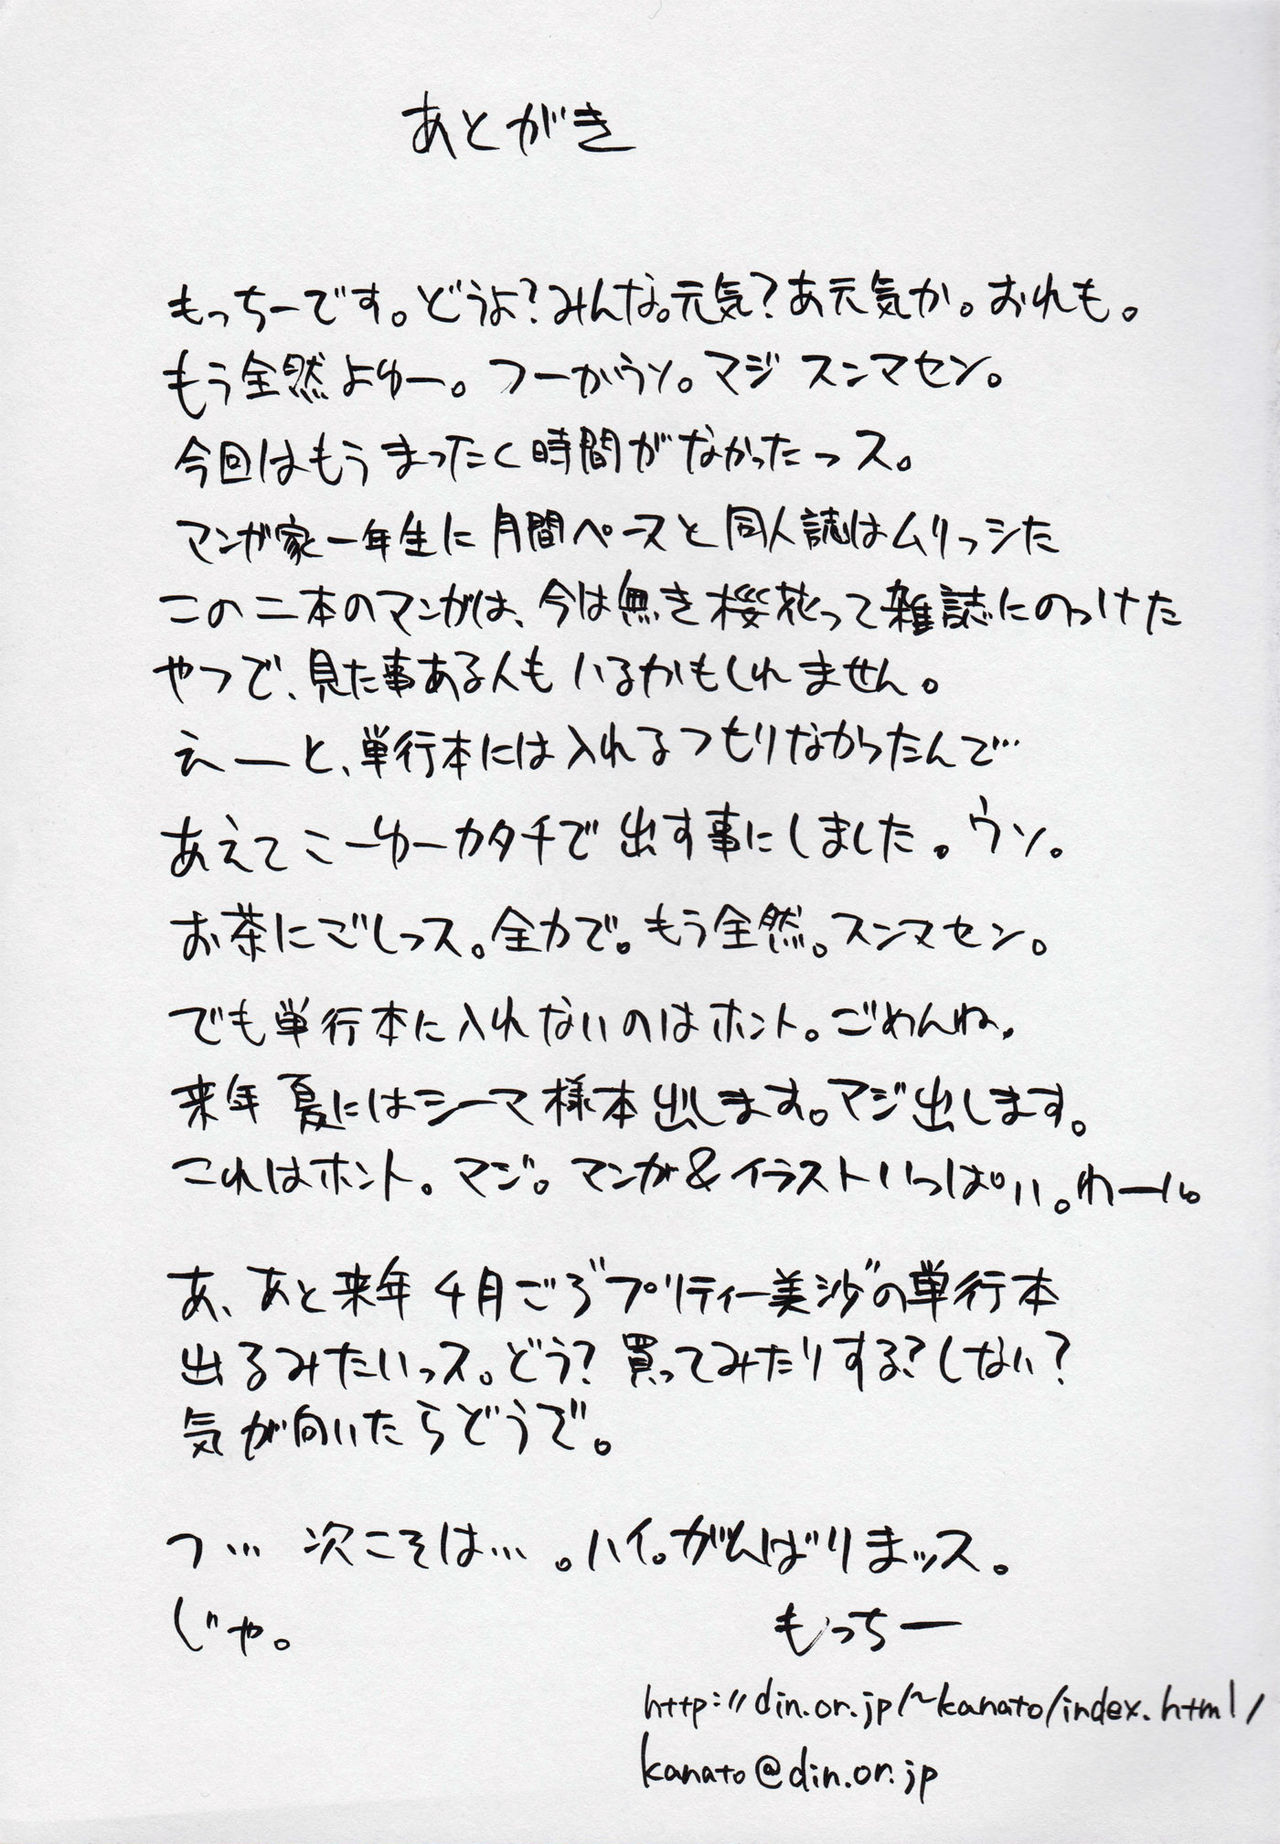 あとがき
もっちーです。どうよ?みんな。元気?あ元気か。おれも。
もう全然よゆー。つーかウソ。マジ スンマセン。
今回はもうまったく時間がなかったっス。
マンガ家一年生に月間ペースと同人誌はムリっシた
この二本のマンガは、今は無き桜花って雑誌にのっけた
やつで、見た事ある人もいるかもしれません。
えーと、単行本には入れるつもりなからたんで…
あえてこーゆーカタチで出す事にしました。ウソ。
お茶にごしっス。全力で。もう全然。スンマセン。
でも単行本に入れないのはホント。ごめんね。
来年夏にはシーマ様本出します。マジ出します。
これはホント。マジ。マンガ&イラストいっぱい。わーい。
あ、あと来年4月ごろ"プリティー美沙"の単行本
出るみたいっス。どう?買ってみたりする?しない?
気が向いたらどうぞ。
つ… 次こそは…。ハイ。がんばりまッス。
じゃ。 もっちー
http://din.or.jp/~kanato/index.html/
kanato@din.or.jp